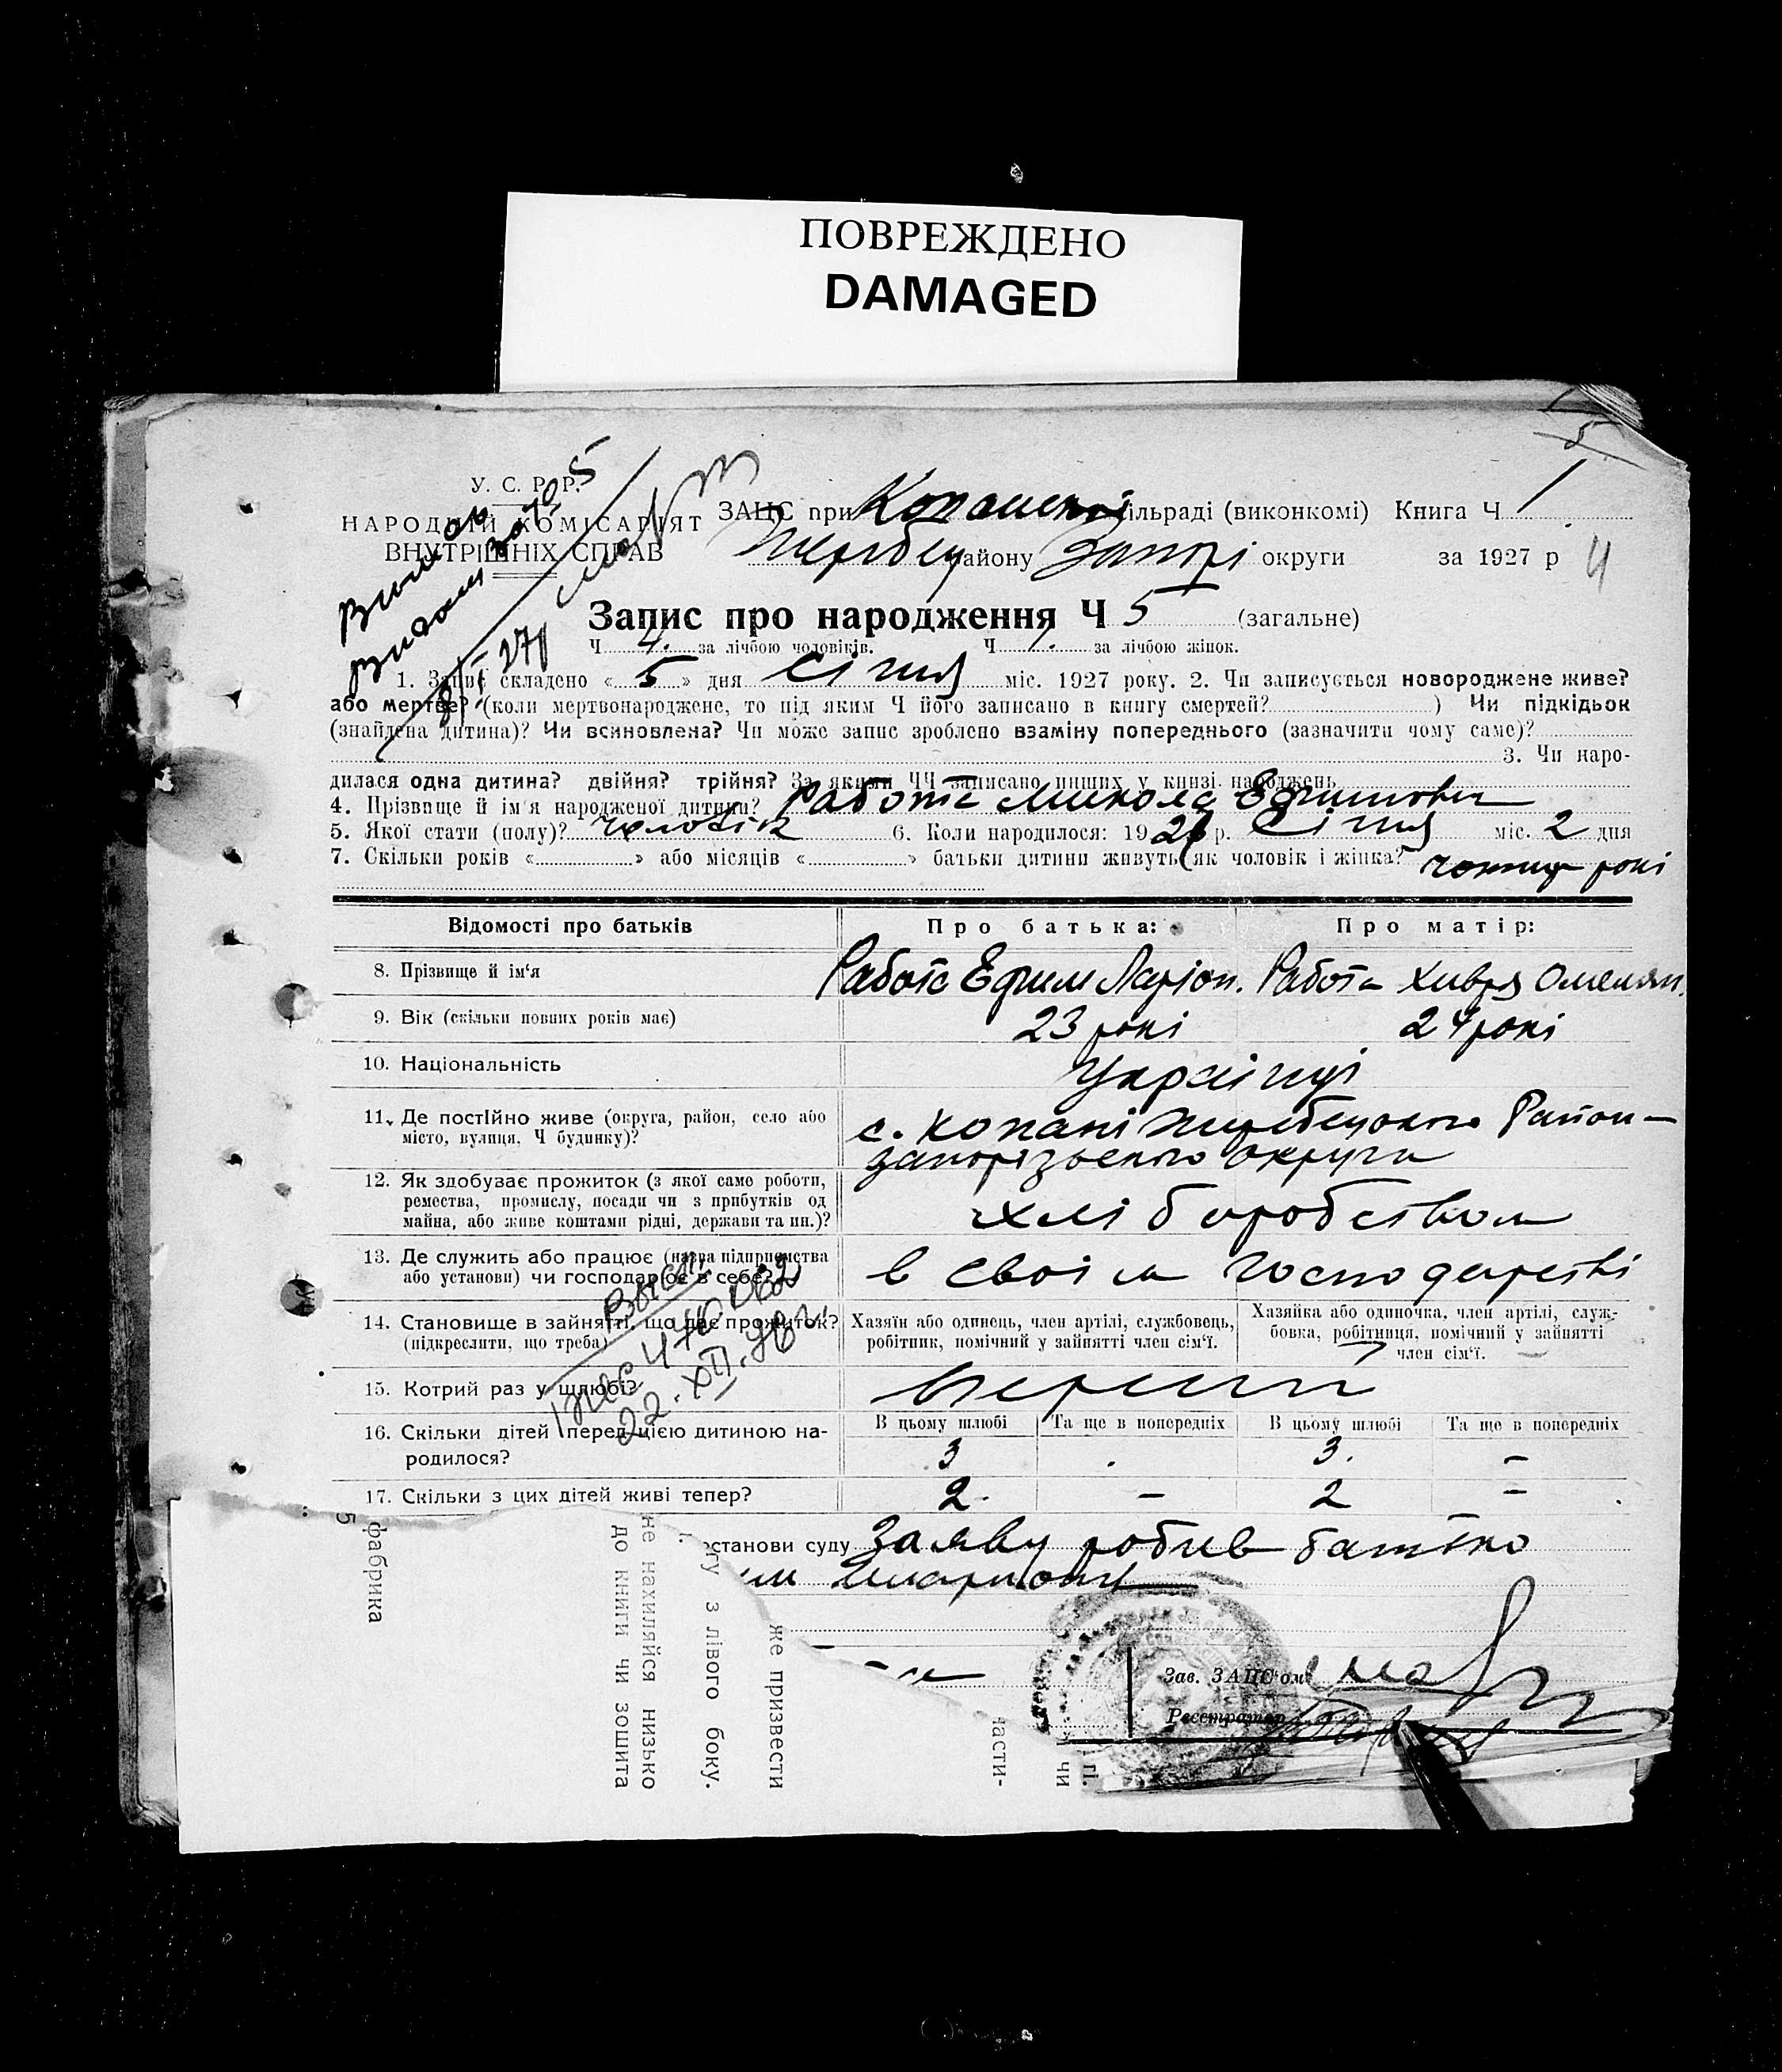 ПОВРЕЖДЕНО
DAMAGED
У. С. Р. Р.
НАРОДНІЙ КОМІСАРІЯТ
ВНУТРІШНІХ СПРАВ
ЗАЦС при сільраді (виконкомі) Книга Ч 1
району Запорі округи за 1927 р 4
Запис про народження Ч 5 (загальне)
Ч 4. за лічбою чоловіків. Ч 1. за лічбою жінок.
1. Запис складено « 5 » дня Січня міс. 1927 року. 2. Чи записується новороджене живе?
або мертве? (коли мертвонароджене, то під яким Ч його записано в книгу смертей? ) Чи підкідьок
(знайдена дитина)? Чи всиновлена? Чи може запис зроблено взаміну попереднього (зазначити чому саме)?
3. Чи наро-
дилася одна дитина? двійня? трійня? За якими ЧЧ записано инших у книзі народжень
4. Прізвище й ім'я народженої дитини? Работа Микола Ефимович
5. Якої стати (полу)? чоловік 6. Коли народилося: 1926 р. Січня міс. 2 дня
7. Скільки років « » або місяців « » батьки дитини живуть (як чоловік і жінка? чотир рокі
Відомості про батьків Про батька: Про матір:
8. Прізвище й ім'я Работа Ефим Ларіон. Работа Хивря Омелян.
9. Вік (скільки повних років має) 23 рокі 24 рокі
10. Національність Українці
11. Де постійно живе (округа, район, село або с. Копані Жеребецького Район
місто, вулиця, Ч будинку)? Запорізького округи
12. Як здобуває прожиток (з якої саме роботи,
ремества, промислу, посади чи з прибутків од хліборобством
майна, або живе коштами рідні, держави та ин.)?
13. Де служить або працює (назва підприємства в своім господарстві
або установи) чи господарює в себе?
14. Становище в зайнятті, що дає прожиток? Хазяїн або одинець, член артілі, службовець, Хазяйка або одиночка, член артілі, служ-
(підкреслити, що треба) робітник, помічний у зайнятті член сім'ї. бовка, робітниця, помічний у зайнятті
член сім'ї.
15. Котрий раз у шлюбі? перший
16. Скільки дітей перед цією дитиною на- В цьому шлюбі Та ще в попередніх В цьому шлюбі Та ще в попередніх
родилося? 3 3. –
17. Скільки з цих дітей живі тепер? 2. – 2 –
останови суду Заяву робив батько
Зав. ЗАЦС'ом
Реєстратор
22.XII.
фабрика
5
не нахиляйся низько
до книги чи зошита
гу з лівого боку.
же призвести
части-
чи
гі.